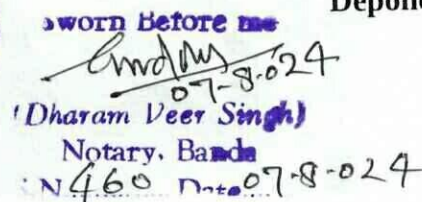 Depone
sworn Before me
07-8-024
(Dharam Veer Singh)
Notary. Banda
N 460 Date 07-8-024